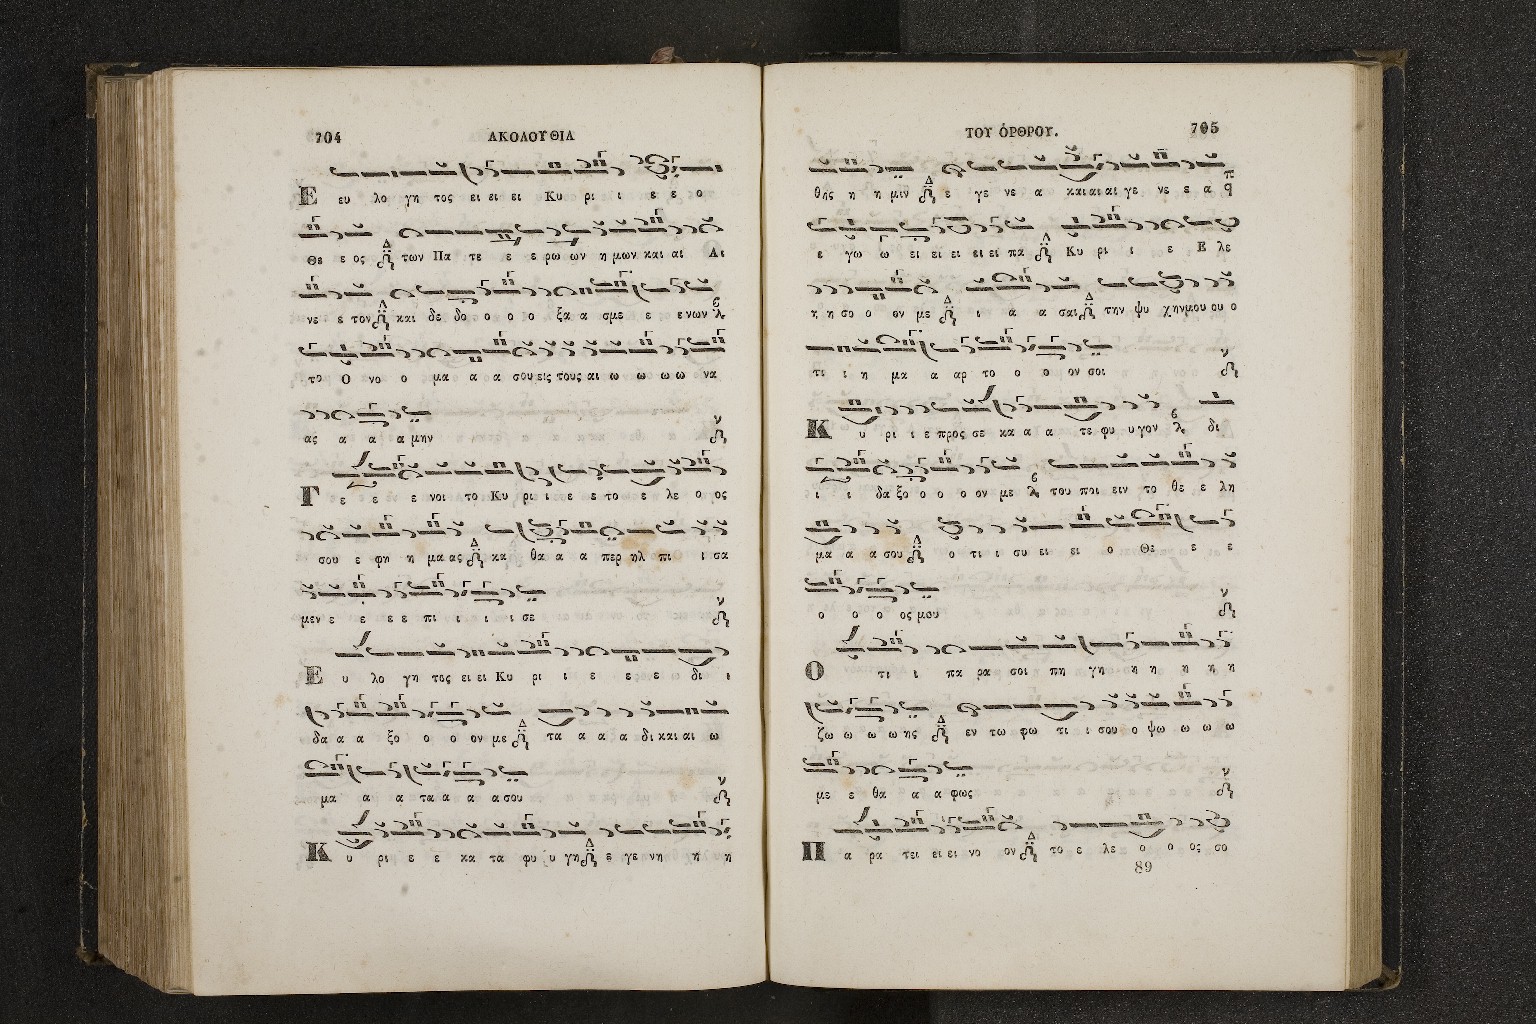 704 ΑΚΟΛΟΥΘΙΑ
Ε ευ λο γη τος ει ει ει Κυ ρι ι ε ε ο
Θε ε ος των Πα τε ε ε ρω ων η μων και αι Αι
νε ε τον και δε δο ο ο ο ξα α σμε ε ε νων
το Ο νο ο μα α α σου εις τους αι ω ω ω ω να
ας α α α μην
Γ ε ε ε νοι το Κυ ρι ι ε ε ε το ε λε ο ος
σου ε φη η μα ας κα θα α α περ ηλ πι ι σα
μεν ε ε ε ε πι ι ι ι σε
Ε υ λο γη τος ει ει Κυ ρι ι ε ε ε ε δι ι
δα α α ξο ο ο ον με τα α α α δι και αι ω
μα α α τα α α α σου
Κ υ ρι ε ε κα τα φυ υ γη ε γε νη η η
ΤΟΥ ΟΡΘΡΟΥ. 705
θης η η μιν ε γε νε α και αι αι γε νε ε α
ε γω ω ει ει ει ει ει πα Κυ ρι ι ε Ε λε
η η σο ο ον με ι α α σαι την ψυ χην μου ου ο
τι ι η μα α αρ το ο ο ον σοι
Κ υ ρι ι ε προς σε κα α α τε φυ υ γον δι
ι ι δα ξο ο ο ο ον με του ποι ειν το θε ε λη
μα α α σου ο τι ι συ ει ει ο Θε ε ε
ο ο ο ος μου
Ο τι ι πα ρα σοι πη γη η η η η η
ζω ω ω ω ης εν τω φω τι ι σου ο ψω ω ω ω
με ε θα α α φως
Π α ρα τει ει ει νο ον το ε λε ο ο ος σο
89